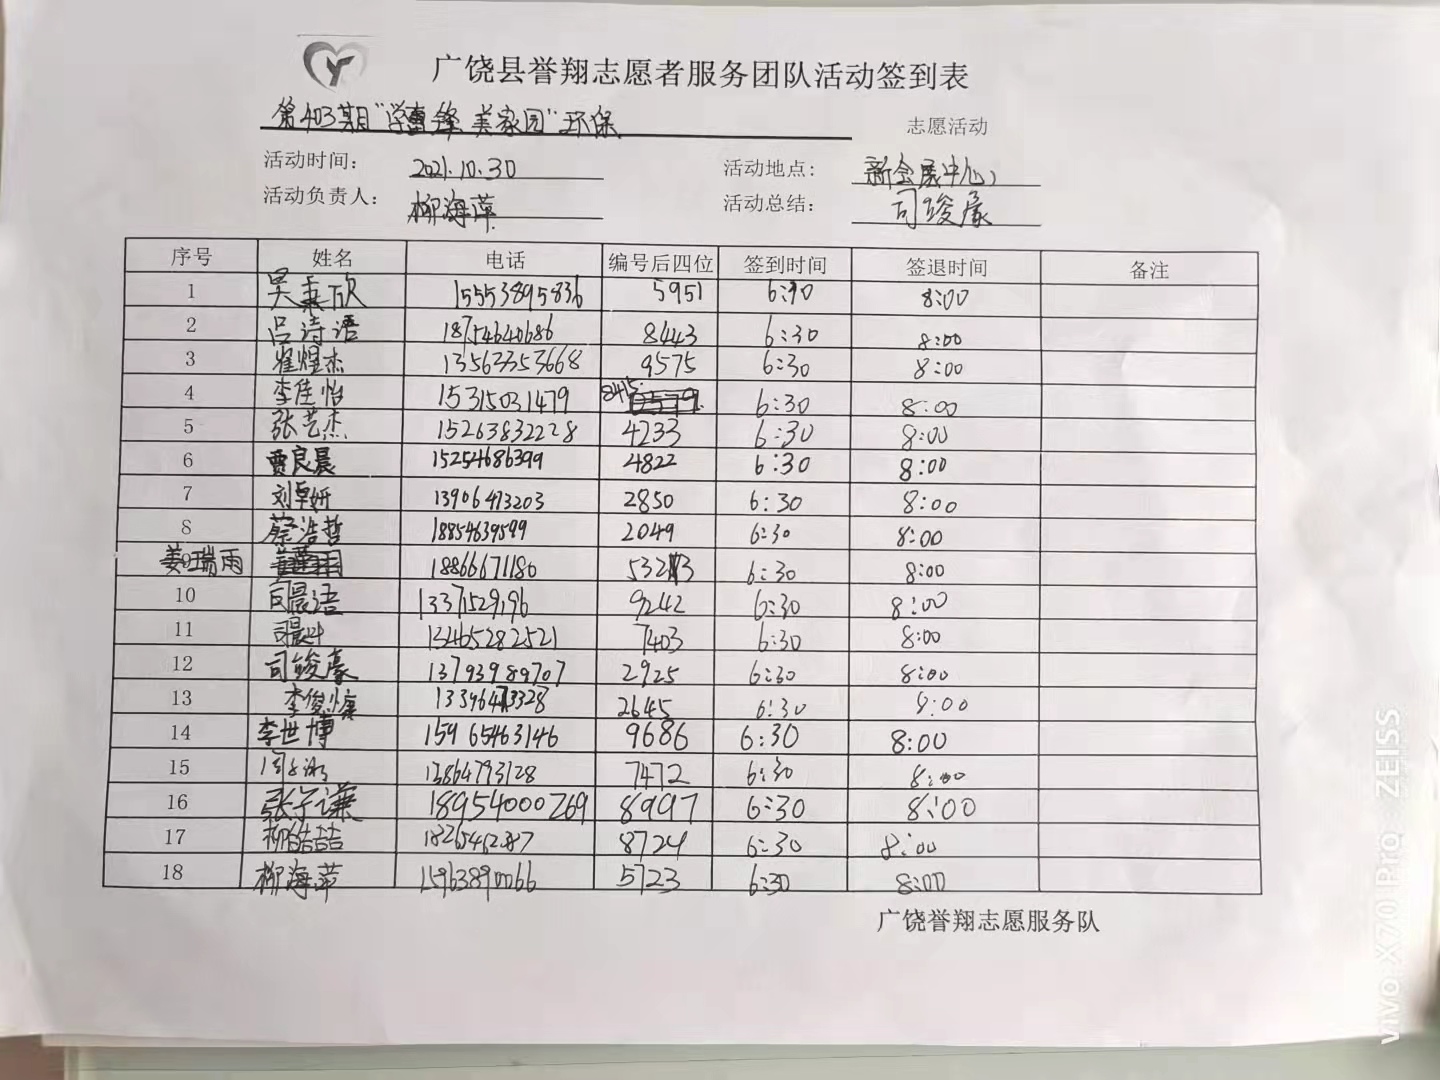 广饶县誉翔志愿者服务团队活动签到表
第403期"学雷锋 美家园"环保 志愿活动
活动时间: 2021.10.30 活动地点: 新会展中心
活动负责人: 柳海萍 活动总结: 司竣豪
序号 姓名 电话 编号后四位 签到时间 签退时间 备注
1 吴秉欣 15553895836 5951 6:30 8:00
2 吕诗语 18754640686 8443 6:30 8:00
3 崔煜杰 13563353668 9575 6:30 8:00
4 李佳怡 15315031479 8415 6:30 8:00
5 张艺杰 15263832228 4233 6:30 8:00
6 贾良晨 15254686399 4822 6:30 8:00
7 刘卓妍 13906473203 2850 6:30 8:00
8 蔡浩哲 18854639599 2049 6:30 8:00
9 姜瑞雨 18866671180 5323 6:30 8:00
10 司晨语 13371529196 9242 6:30 8:00
11 13465282521 7403 6:30 8:00
12 司竣豪 13793989707 2925 6:30 8:00
13 李俊慷 2645 6:30 8:00
14 李世博 15965463146 9686 6:30 8:00
15 13864793128 7472 6:30 8:00
16 张子谦 18954000269 8997 6:30 8:00
17 柳皓喆 8724 6:30 8:00
18 柳海萍 15963890066 5723 6:30 8:00
广饶誉翔志愿服务队
vivo X70 Pro ZEISS